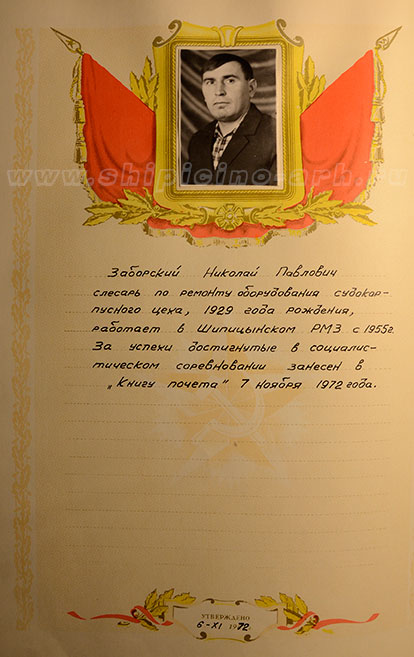 www.shipicino-arh.ru
Заборский Николай Павлович
слесарь по ремонту оборудования судокор-
пусного цеха, 1929 года рождения,
работает в Шипицынском РМЗ с 1955г.
За успехи достигнутые в социалис-
тическом соревновании занесен в
„Книгу почета" 7 ноября 1972 года.
УТВЕРЖДЕНО
6-XI 1972